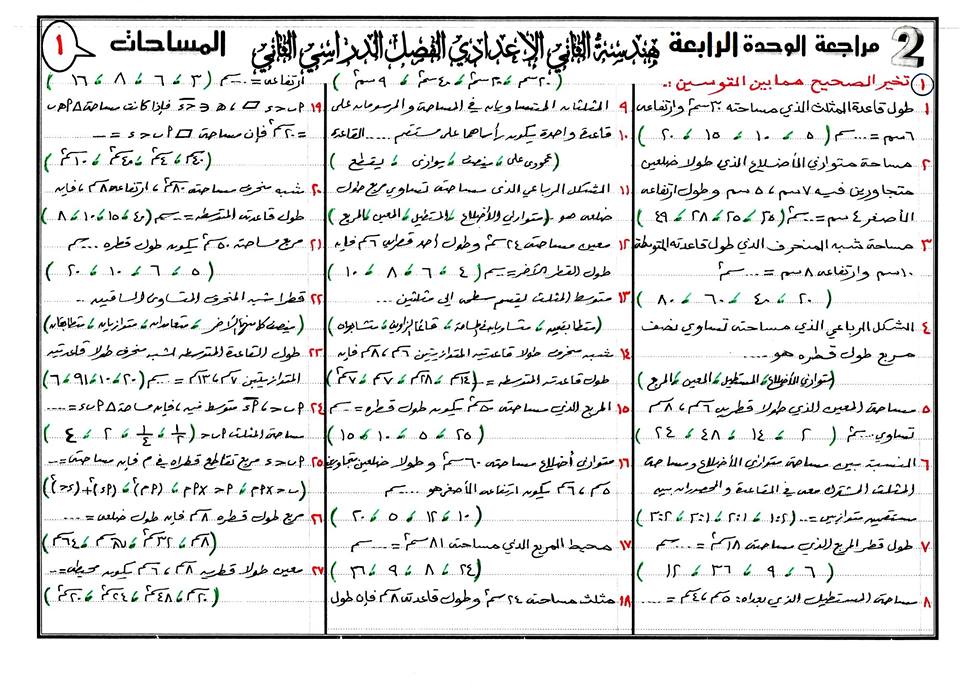 2 مراجعة الوحدة الرابعة هندسة الثاني الإعدادي الفصل الدراسي الثاني المساحات ١
١ تخير الصحيح مما بين القوسين :
١ طول قاعدة المثلث الذي مساحته ٣٠ سم٢ وارتفاعه
٦ سم = .... سم ( ٥ ، ١٠ ، ١٥ ، ٢٠ )
٢ مساحة متوازي الأضلاع الذي طولا ضلعين
متجاورين فيه ٧ سم ، ٥ سم وطول ارتفاعه
الأصغر ٤ سم = .... سم٢ ( ٣٥ ، ٢٥ ، ٢٨ ، ٤٩ )
٣ مساحة شبه المنحرف الذي طول قاعدته المتوسطة
١٠ سم وارتفاعه ٨ سم = .... سم٢
( ٢٠ ، ٤٠ ، ٦٠ ، ٨٠ )
٤ الشكل الرباعي الذي مساحته تساوي نصف
مربع طول قطره هو ....
( متوازي الأضلاع ، المستطيل ، المعين ، المربع )
٥ مساحة المعين الذي طولا قطريه ٦ سم ، ٨ سم
تساوي .... سم٢ ( ٢ ، ١٤ ، ٤٨ ، ٢٤ )
٦ النسبة بين مساحة متوازي الأضلاع ومساحة
المثلث المشترك معه في القاعدة والمحصوران بين
مستقيمين متوازيين = .... ( ١:٢ ، ٢:١ ، ٣:١ ، ٣:٢ )
٧ طول قطر المربع الذي مساحته ١٨ سم٢ = .... سم
( ٦ ، ٩ ، ٣٦ ، ١٢ )
٨ مساحة المستطيل الذي بعداه : ٥ سم ، ٤ سم = ....
( ٢٠ سم ، ٢٠ سم٢ ، ٤٠ سم٢ ، ٩ سم٢ )
٩ المثلثان المتساويان في المساحة والمرسومان على
١٠ قاعدة واحدة يكون رأساهما على مستقيم .... القاعدة
( عمودي على ، ينصف ، يوازي ، يقطع )
١١ الشكل الرباعي الذي مساحته تساوي مربع طول
ضلعه هو ( متوازي الأضلاع ، المستطيل ، المعين ، المربع )
١٢ معين مساحته ٢٤ سم٢ وطول أحد قطريه ٦ سم فإن
طول القطر الآخر = ... سم ( ٤ ، ٦ ، ٨ ، ١٠ )
١٣ متوسط المثلث يقسم سطحه إلى مثلثين ...
( متطابقين ، متساويان في المساحة ، قائما الزاوية ، متشابهان )
١٤ شبه منحرف طولا قاعدتيه المتوازيتين ٦ سم ، ٨ سم فإن
طول قاعدته المتوسطة = ... ( ١٤ سم ، ٢٨ سم ، ٧ سم ، ٧ سم٢ )
١٥ المربع الذي مساحته ٥٠ سم٢ يكون طول قطره = ... سم
( ٢٥ ، ٥ ، ١٠ ، ١٥ )
١٦ متوازي أضلاع مساحته ٦٠ سم٢ وطولا ضلعين متجاورين
٥ سم ، ٦ سم يكون ارتفاعه الأصغر هو .... سم
( ١٠ ، ١٢ ، ٥ ، ٢٠ )
١٧ محيط المربع الذي مساحته ٨١ سم٢ = .... سم
( ٢٤ ، ٨ ، ٩ ، ٣٦ )
١٨ مثلث مساحته ٢٤ سم٢ وطول قاعدته ٨ سم فإن طول
ارتفاعه = .... سم ( ٣ ، ٦ ، ٨ ، ١٦ )
١٩ ٢٠ سم٢ فإن مساحة
( ٤٠ سم ، ٤ سم٢ ، ٤٠ سم٢ ، ١٠ سم٢ )
٢٠ شبه منحرف مساحته ٨٠ سم٢ ، ارتفاعه ٨ سم ، فإن
طول قاعدته المتوسطة = ... سم ( ٤٠ ، ١٥ ، ١٠ ، ٨ )
٢١ مربع مساحته ٥٠ سم٢ يكون طول قطره .... سم
( ٥ ، ٦ ، ١٠ ، ٢٠ )
٢٢ قطرا شبه المنحرف المتساوي الساقين ...
( ينصف كل منهما الآخر ، متعامدان ، متوازيان ، متطابقان )
٢٣ طول القاعدة المتوسطة لشبه منحرف طولا قاعدتيه
المتوازيتين ٧ سم ، ١٣ سم = ... سم ( ٢٠ ، ١٠ ، ٩١ ، ٦ )
٢٤ متوسط فيه ، فإن مساحة
مساحة المثلث ( ١/٢ ، ١/٤ ، ٢ ، ٤ )
٢٥ مربع تقاطع قطراه في م فإن مساحته = ...
٢٦ مربع طول قطره ٨ سم فإن طول ضلعه = ....
٢٧ معين طولا قطريه ٨ سم ، ٦ سم يكون محيطه = ...
( ٢٠ سم ، ٤٨ سم٢ ، ٢٤ سم٢ ، ٢٠ سم٢ )